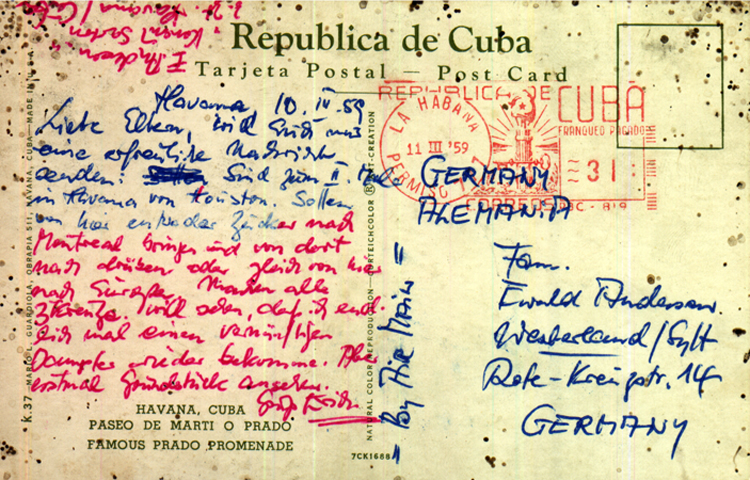 E. Andersen
Havana / Cuba
Republica de Cuba
Tarjeta Postal — Post Card
REPUBLICA DE CUBA
LA HABANA
11 III '59
PERMISO
FRANQUEO PAGADO
31
CORREOS
Havana 10. IV. 59
Liebe Eltern, will Euch nur
eine erfreuliche Nachricht
senden: Sind zum II. Male
in Havana von Houston. Sollen
von hier entweder Zucker nach
Montreal bringen und von dort
nach drüben oder gleich von hier
nach Europa. Machen alle
will sehen, daß ich end-
lich mal einen vernünftigen
Dampfer wieder bekomme. Aber
erstmal Grundstück ansehen.
Gruß Erich
HAVANA, CUBA
PASEO DE MARTI O PRADO
FAMOUS PRADO PROMENADE
K.37 - MARIO L. GUARDIOLA, OBRAPIA 511, HAVANA, CUBA MADE IN U.S.A.
NATURAL COLOR REPRODUCTION — CURTEICHCOLOR ® ART-CREATION
7CK1688
= By Air Mail =
GERMANY
ALEMANIA
Fam.
Ewald Andersen
Westerland/Sylt
Rote-Kreuzstr. 14
GERMANY